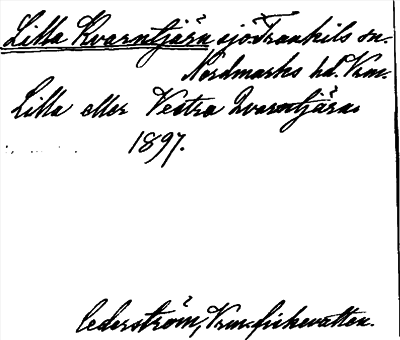 Lilla Kvarntjärn sjö Trankils sn.
Nordmarks hd. Vrm.
Lilla eller Vestra Qvarntjärn.
1897.
Cederström, Vrm. fiskevatten.